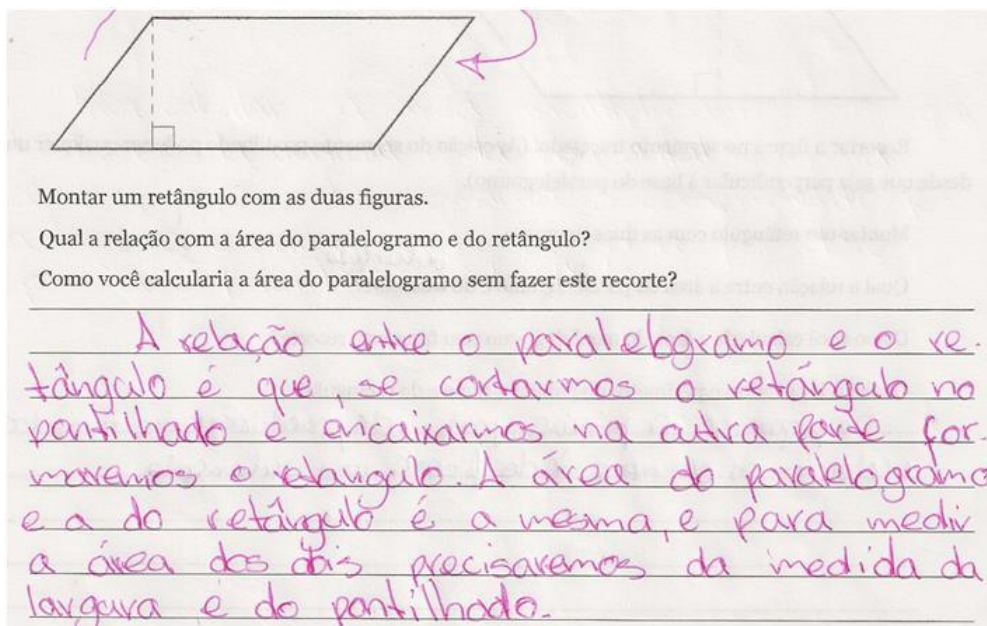 Montar um retângulo com as duas figuras.
Qual a relação com a área do paralelogramo e do retângulo?
Como você calcularia a área do paralelogramo sem fazer este recorte?
A relação entre o paralelogramo e o re
tângulo é que, se cortarmos o retângulo no
pontilhado e encaixarmos na outra parte for-
maremos o etangulo. A área do paralelogramo
e a do retângulo é a mesma, e para medir
a área dos dois precisaremos da medida da
largura e do pontilhado.